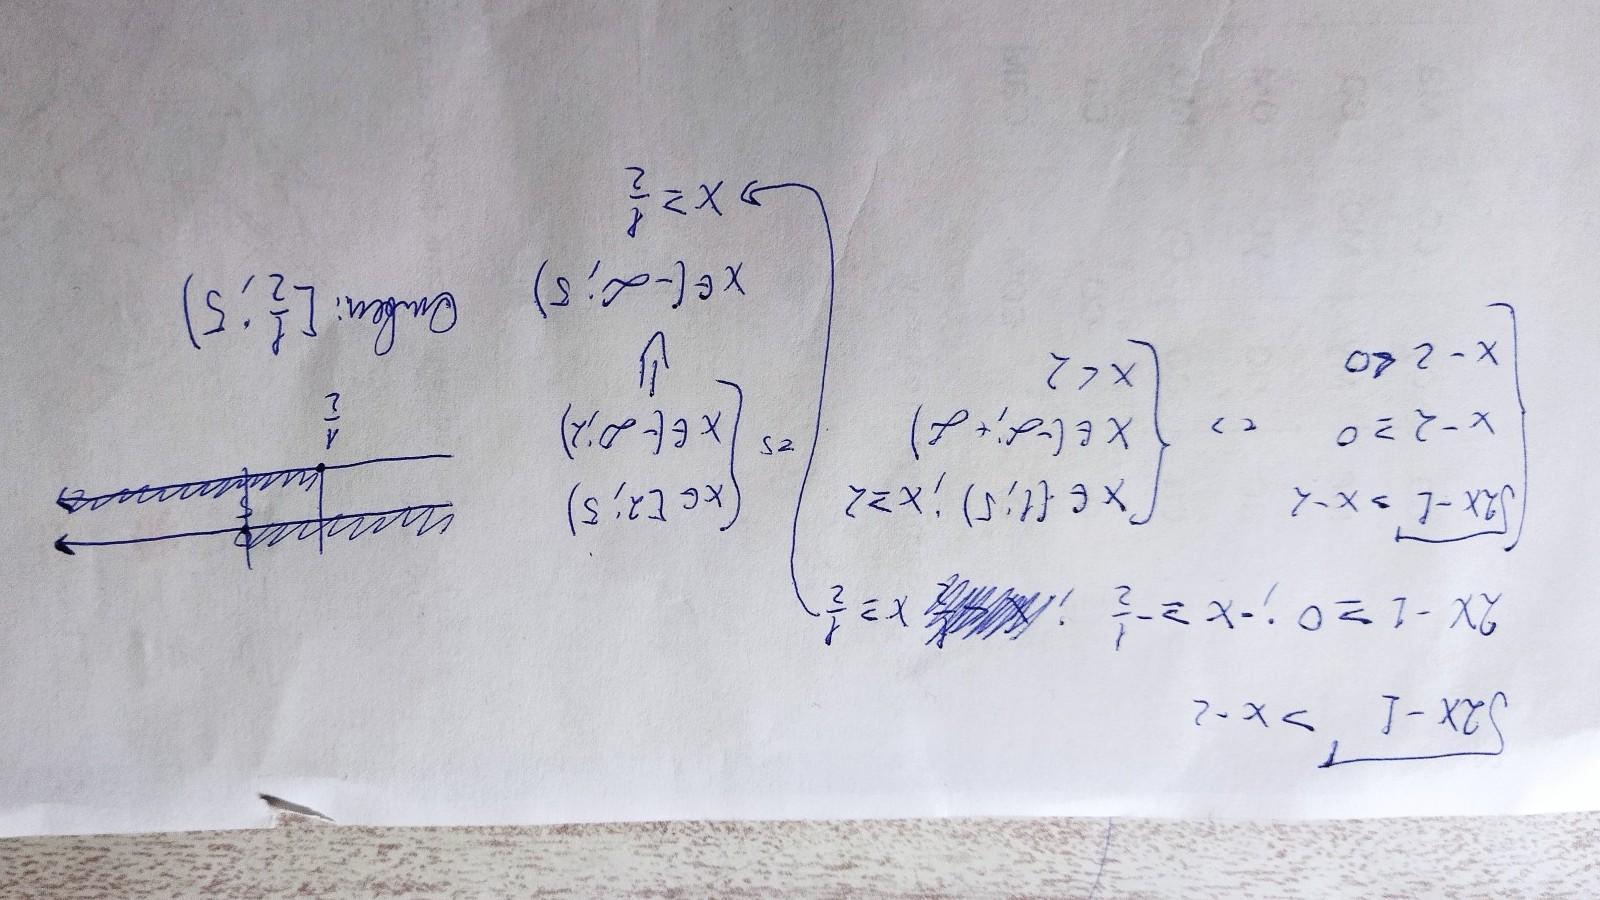 √2x-1 > x-2
2x-1 ≥ 0 ; -x ≥ -1/2 ; x ≥ 1/2
√2x-1 > x-2
x-2 ≥ 0
x-2 < 0
<=>
x ∈ [1; 5) ; x ≥ 2
x ∈ (-∞; +∞)
x < 2
<=>
x ∈ [2; 5)
x ∈ (-∞; 2)
⇓
x ∈ (-∞; 5)
x ≥ 1/2
5
1/2
Ответ: [1/2; 5)